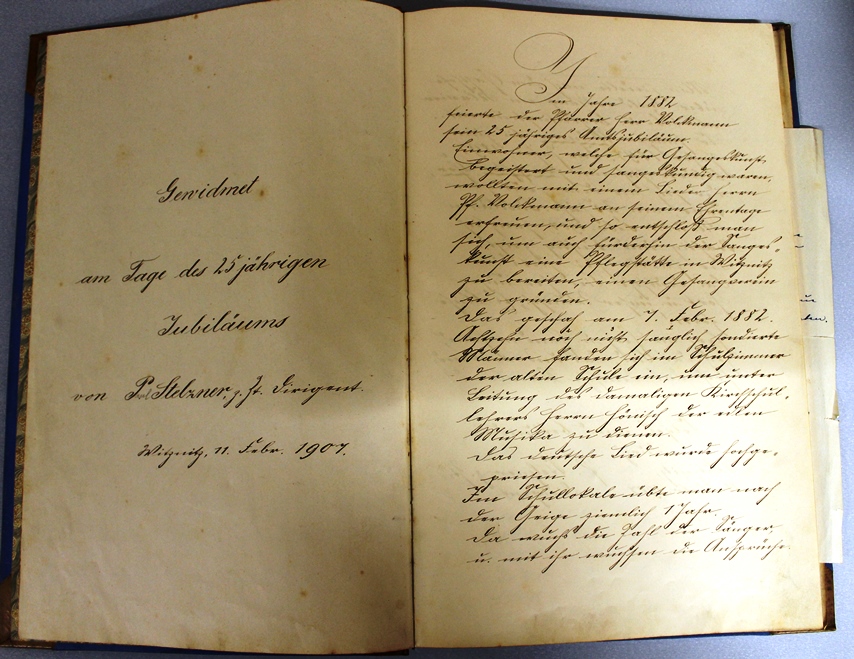 Gewidmet
am Tage des 25 jährigen
Jubiläums
von Stelzner, z. Zt. Dirigent.
Witznitz, 11. Febr. 1907.
Im Jahre 1882
feierte der Pfarrer Herr Volkmann
sein 25 jähriges Amtsjubiläum.
Einwohner, welche für Gesangeskunst
begeistert und sangeskundig waren,
wollten mit einem Liede Herrn
Pf. Volkmann an seinem Ehrentage
erfreuen, und so entschloß man
sich, um auch fürderhin der Sanges-
kunst eine Pflegstätte in Witznitz
zu bereiten, einen Gesangverein
zu gründen.
Das geschah am 7. Febr. 1882.
Achtzehn noch nicht sänglich sonderte
Männer fanden sich im Schulzimmer
der alten Schule ein, um unter
Leitung des damaligen Kirchschul-
lehrers Herrn Hönisch der edlen
Musika zu dienen.
Das deutsche Lied wurde hochge-
priesen.
Im Schullokale übte man nach
der Geige ziemlich 1 Jahr.
Da wuchs die Zahl der Sänger
u. mit ihr wuchsen die Ansprüche.